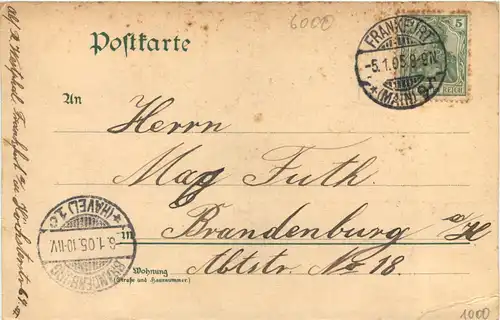 6000
Postkarte
5
REICH
FRANKFURT
-5.1.05.8-9N.
*(MAIN) 9
An
Herrn
Max Futh
in Brandenburg a/H
Abtstr. No 18.
Wohnung
(Straße und Hausnummer)
BRANDENBURG
6.1.05.10-11V.
*(HAVEL) 1
Frankfurt
1000